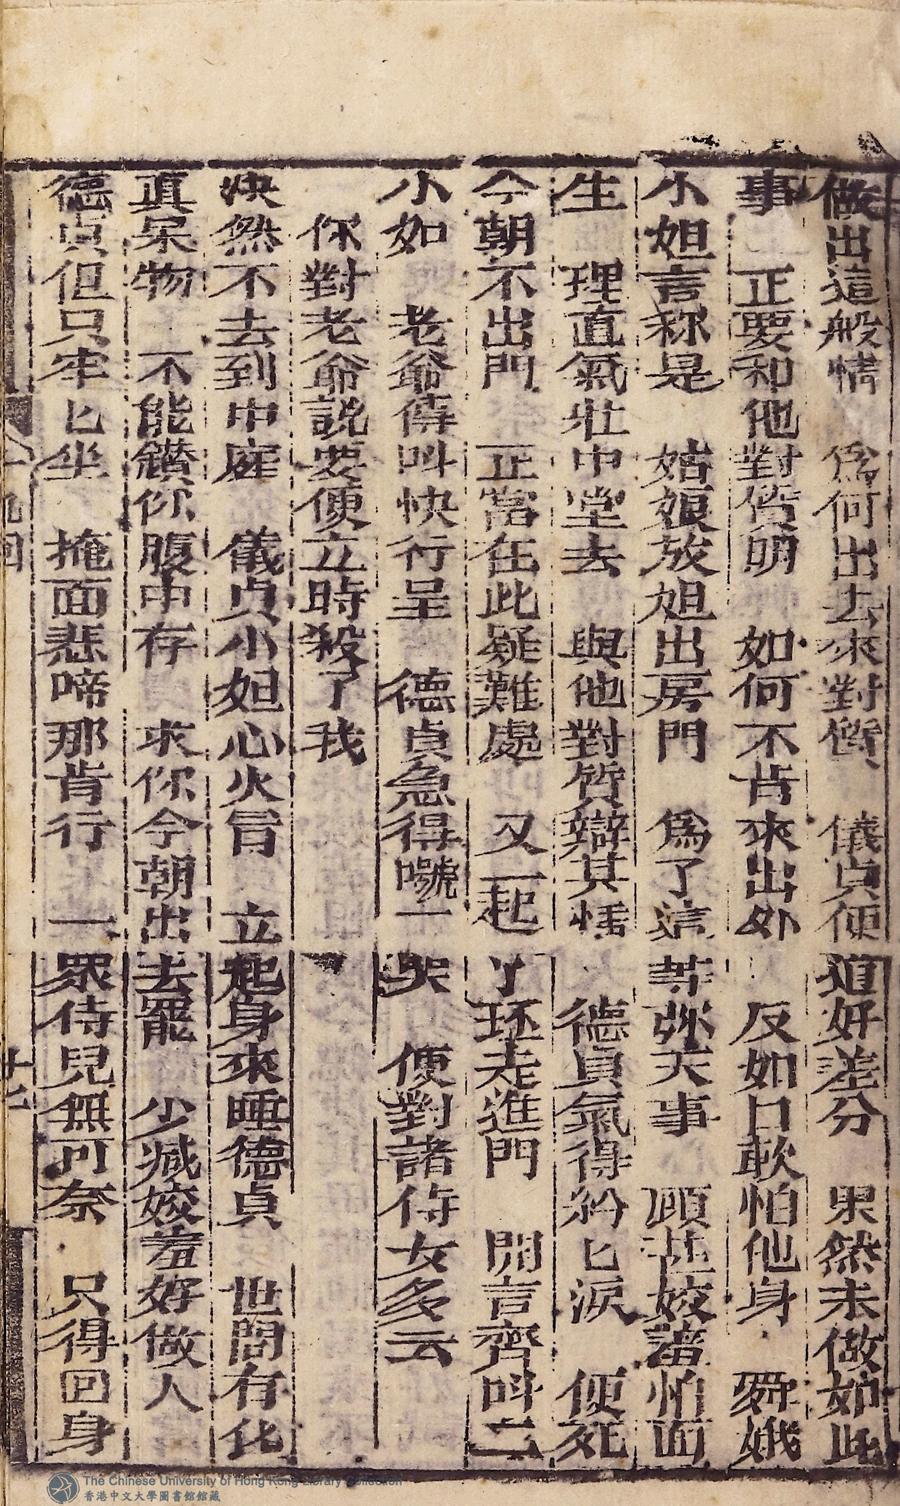 做出這般情　為何出去來對質　儀貞便道好差分　果然未做如此
事　正要和他對質明　如何不肯來出外　反如口軟怕他身　舜娥
小姐言称是　姑娘放姐出房門　為了這等弥天事　顾甚姣羞怕面
生　理直氣壮中堂去　與他對質辯其情　德貞氣得紛匕淚　便死
今朝不出門　正當在此疑難處　又一起丫环走進門　開言齊呌二
小如　老爺傳呌快行呈　德貞急得嚎一哭　便對諸侍女多云
你對老爺説要便立時殺了我
决然不去到中庭　儀貞小姐心火冒　立起身來唾德貞　世間有此
真呆物　不能鑚你腹中存　求你今朝出去罷　少减姣羞好做人
德貞但只牢匕坐　掩面悲啼那肯行　一眾侍兒無可奈　只得回身
十九回
十七
The Chinese University of Hong Kong Library Collection
香港中文大學圖書館館藏